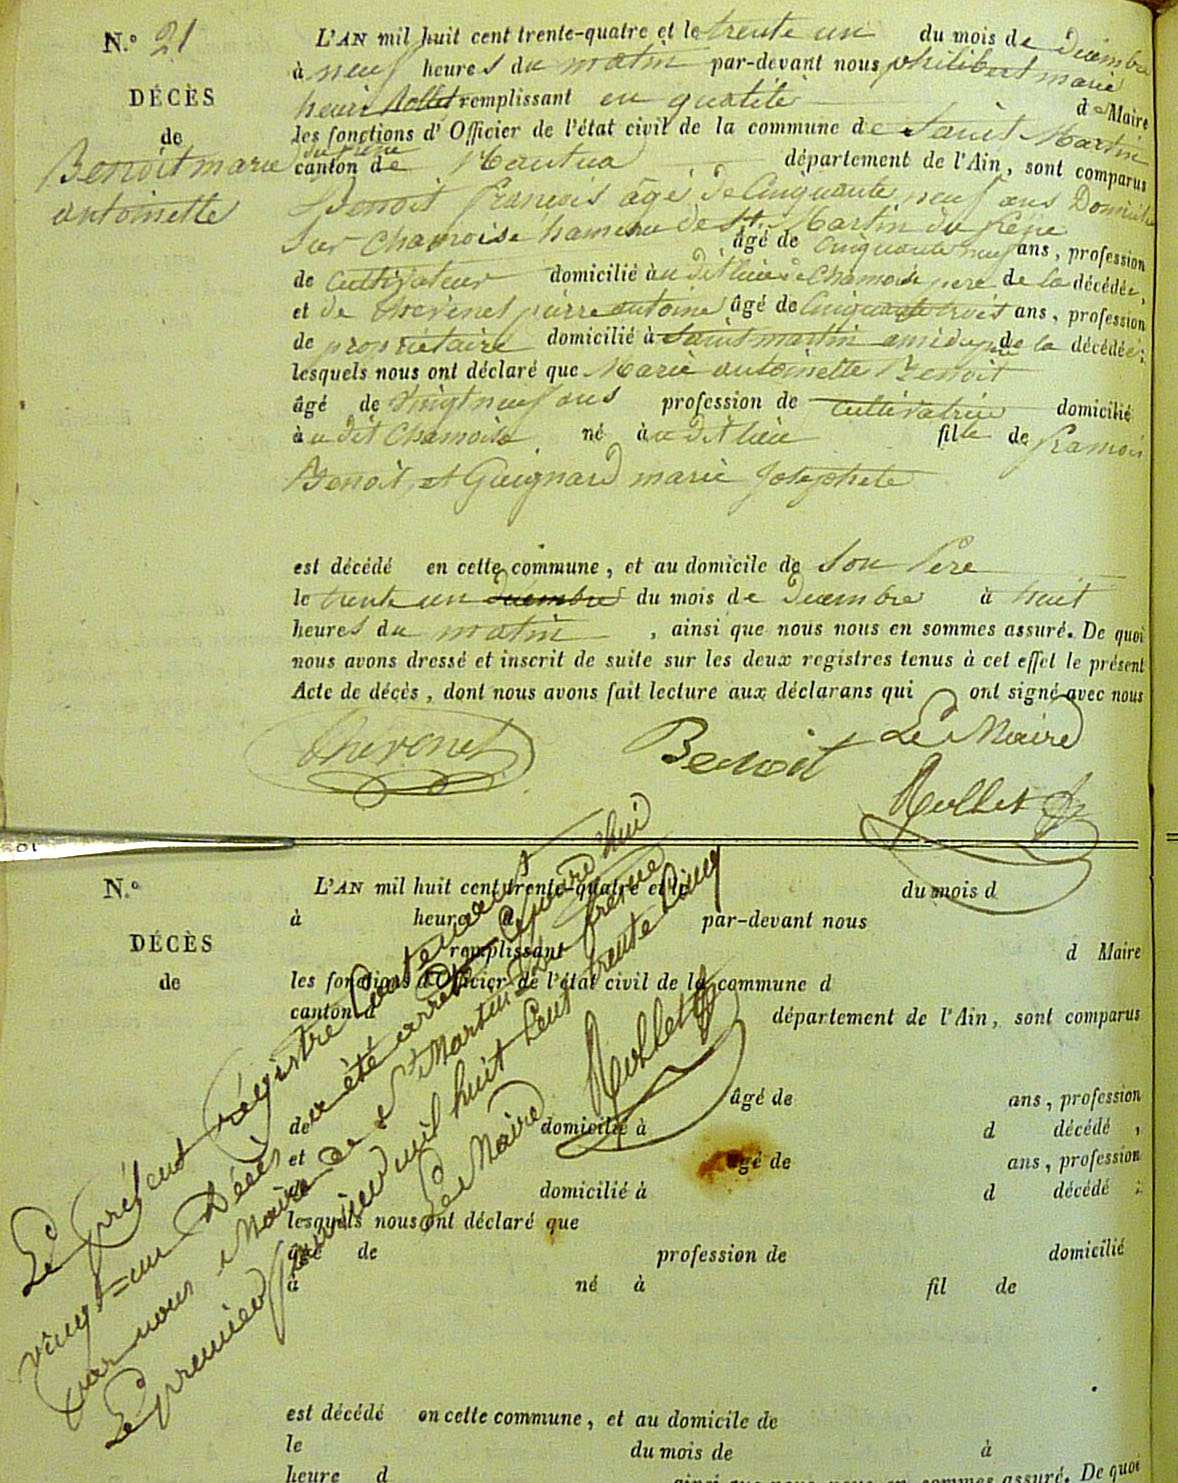 N.° 21
DÉCÈS
de
Benoit marie
antoinette
L'AN mil huit cent trente-quatre et le trente un du mois de Décembre
à neuf heures du matin par-devant nous philibert marie
henri Rollet remplissant en qualité de Maire
les fonctions d'Officier de l'état civil de la commune de Saint Martin
du frêne
canton de Nantua département de l'Ain, sont comparus
Benoit francois âgé de Cinquante neuf ans Domicilié
Sur Chamoise hameau de St. Martin du frêne
âgé de Cinquante neuf ans, profession
de Cultivateur domicilié au dit lieu de Chamoise pere de la décédée,
et de Chevenet pierre antoine âgé de Cinquante trois ans, profession
de propriétaire domicilié à Saint martin ami de la décédée;
lesquels nous ont déclaré que Marie antoinette Benoit
âgé de Vingt neuf ans profession de cultivatrice domicilié
à u dit Chamoise né à u dit lieu fille de francois
Benoit et Guignard marie Josephete
est décédé en cette commune, et au domicile de Son Pere
le trente un Decembre du mois de Decembre à huit
heures du matin, ainsi que nous nous en sommes assuré. De quoi
nous avons dressé et inscrit de suite sur les deux registres tenus à cet effet le présent
Acte de décès, dont nous avons fait lecture aux déclarans qui ont signé avec nous
Chevenet Benoit Le Maire
Rollet
N.°
DÉCÈS
de
L'AN mil huit cent trente-quatre et le du mois d
à heure d par-devant nous
remplissant d Maire
les fonctions d'Officier de l'état civil de la commune d
canton d département de l'Ain, sont comparus
âgé de ans, profession
de domicilié à d décédé ,
et âgé de ans, profession
domicilié à d décédé ;
lesquels nous ont déclaré que
âgé de profession de domicilié
à né à fil de
est décédé en cette commune, et au domicile de
le du mois de à
heure d ainsi que nous nous en sommes assuré. De quoi
Le présent régistre Contenant
vingt=un Décès a été arrêté Cejourd'hui
par nous Maire de St Martin du frêne
Le premier janvier mil huit Cent trente Cinq
Le Maire Rollet